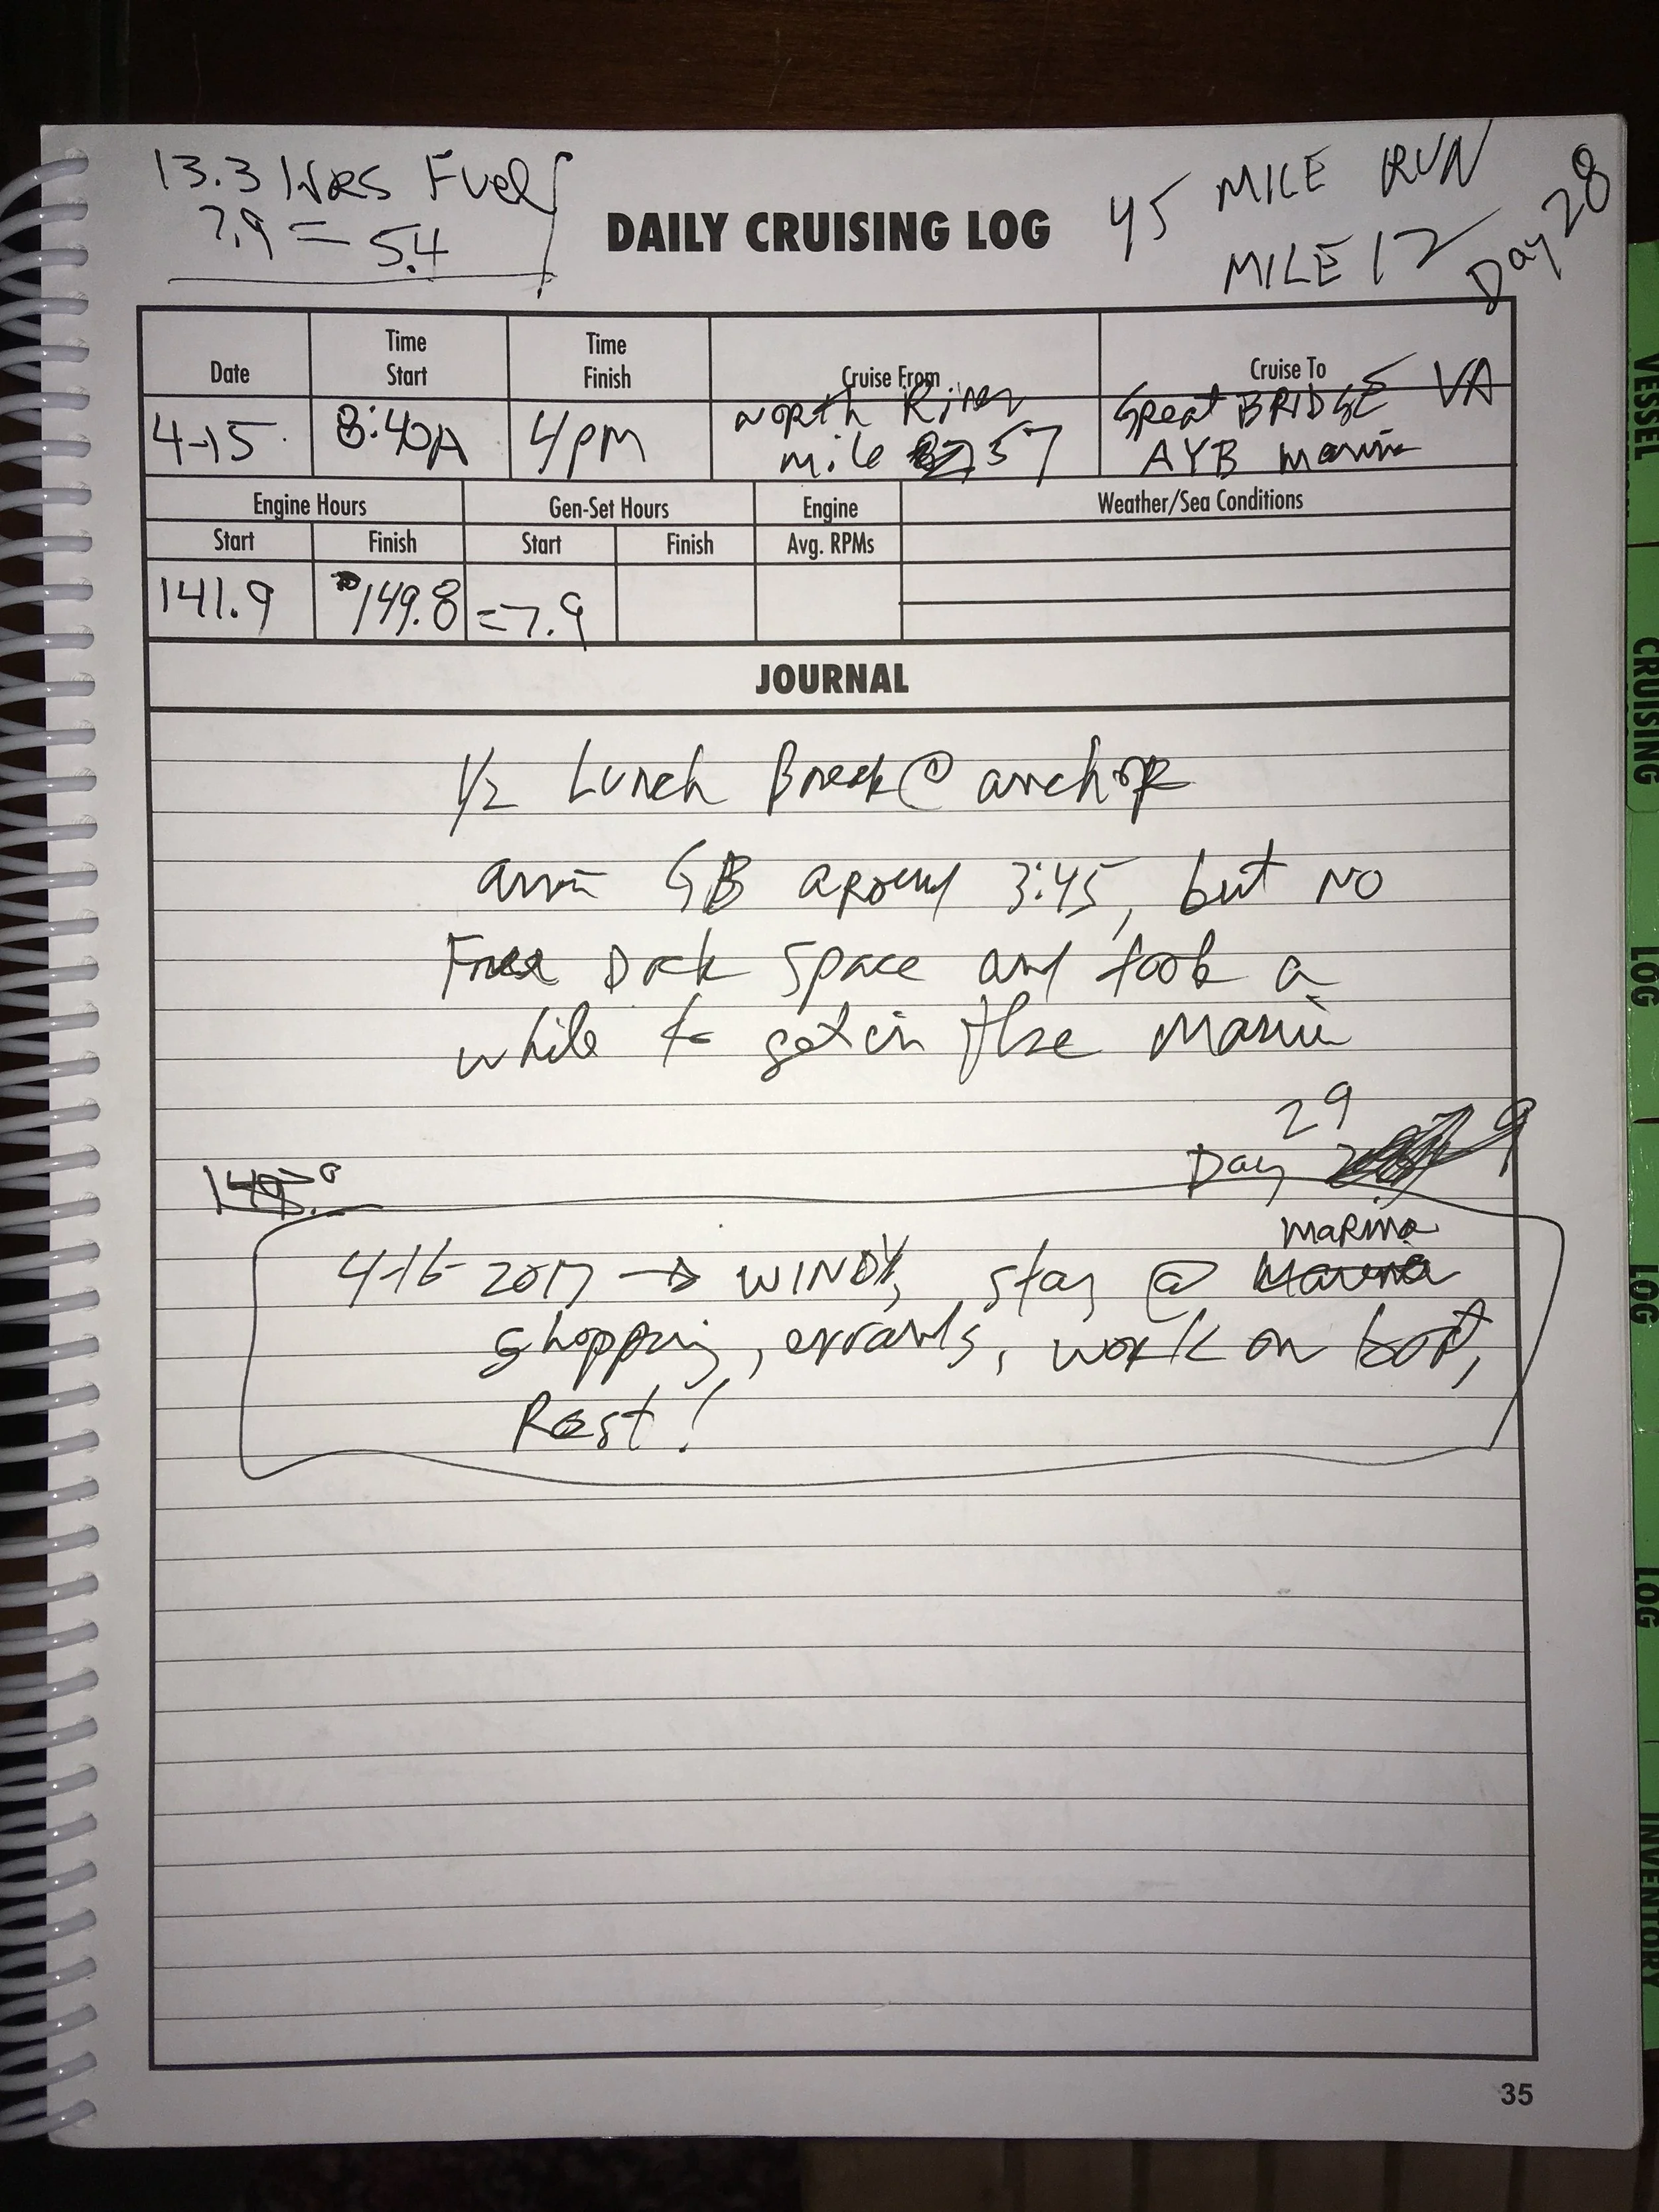 13.3 Hrs Fuel
7.9 = 5.4
DAILY CRUISING LOG
45 MILE RUN
MILE 12
Day 28
Date
Time Start
Time Finish
Cruise From
Cruise To
4-15
8:40A
4PM
North River
mile 57
Great BRIDGE VA
AYB Marina
Engine Hours
Gen-Set Hours
Engine
Weather/Sea Conditions
Start
Finish
Start
Finish
Avg. RPMs
141.9
149.8
=7.9
JOURNAL
1/2 Lunch Break @ anchor
arrive GB around 3:45, but NO
Free Dock Space and took a
while to get in the Marina
29
Day
marina
4-16-2017 → WINDY, stay @ Marina
shopping, errands, work on boat,
Rest!
35
VESSEL
CRUISING
LOG
LOG
LOG
INVENTORY